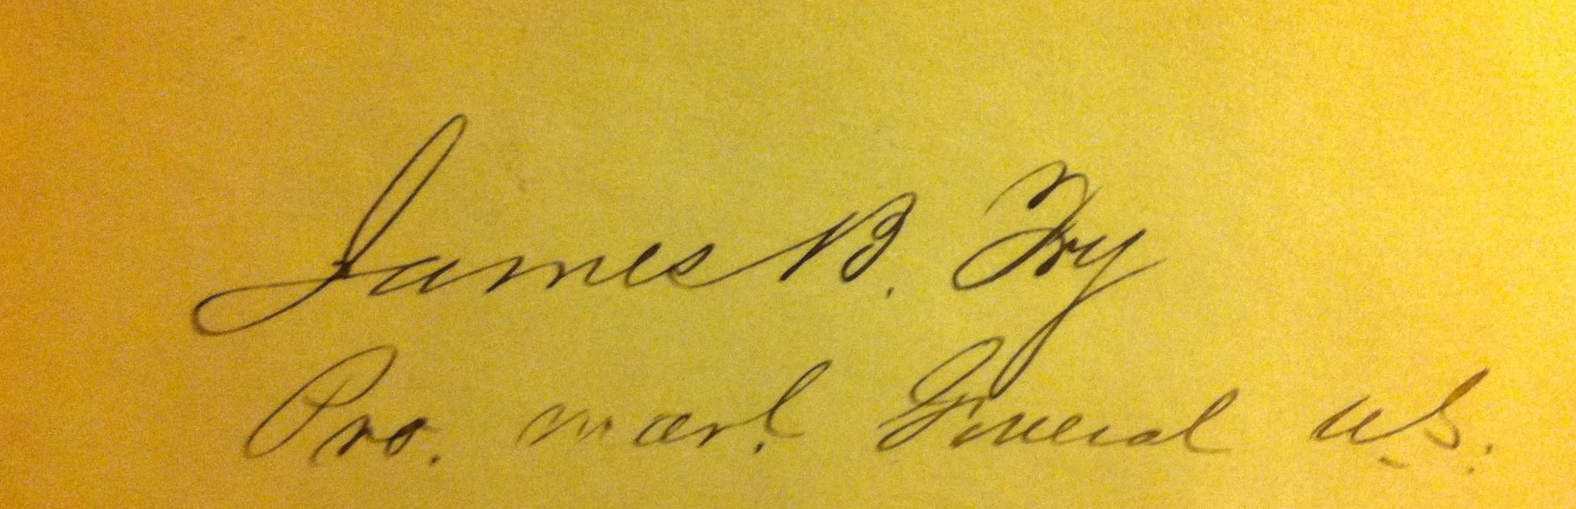 James B. Fry
Pro. Marl. General U.S.